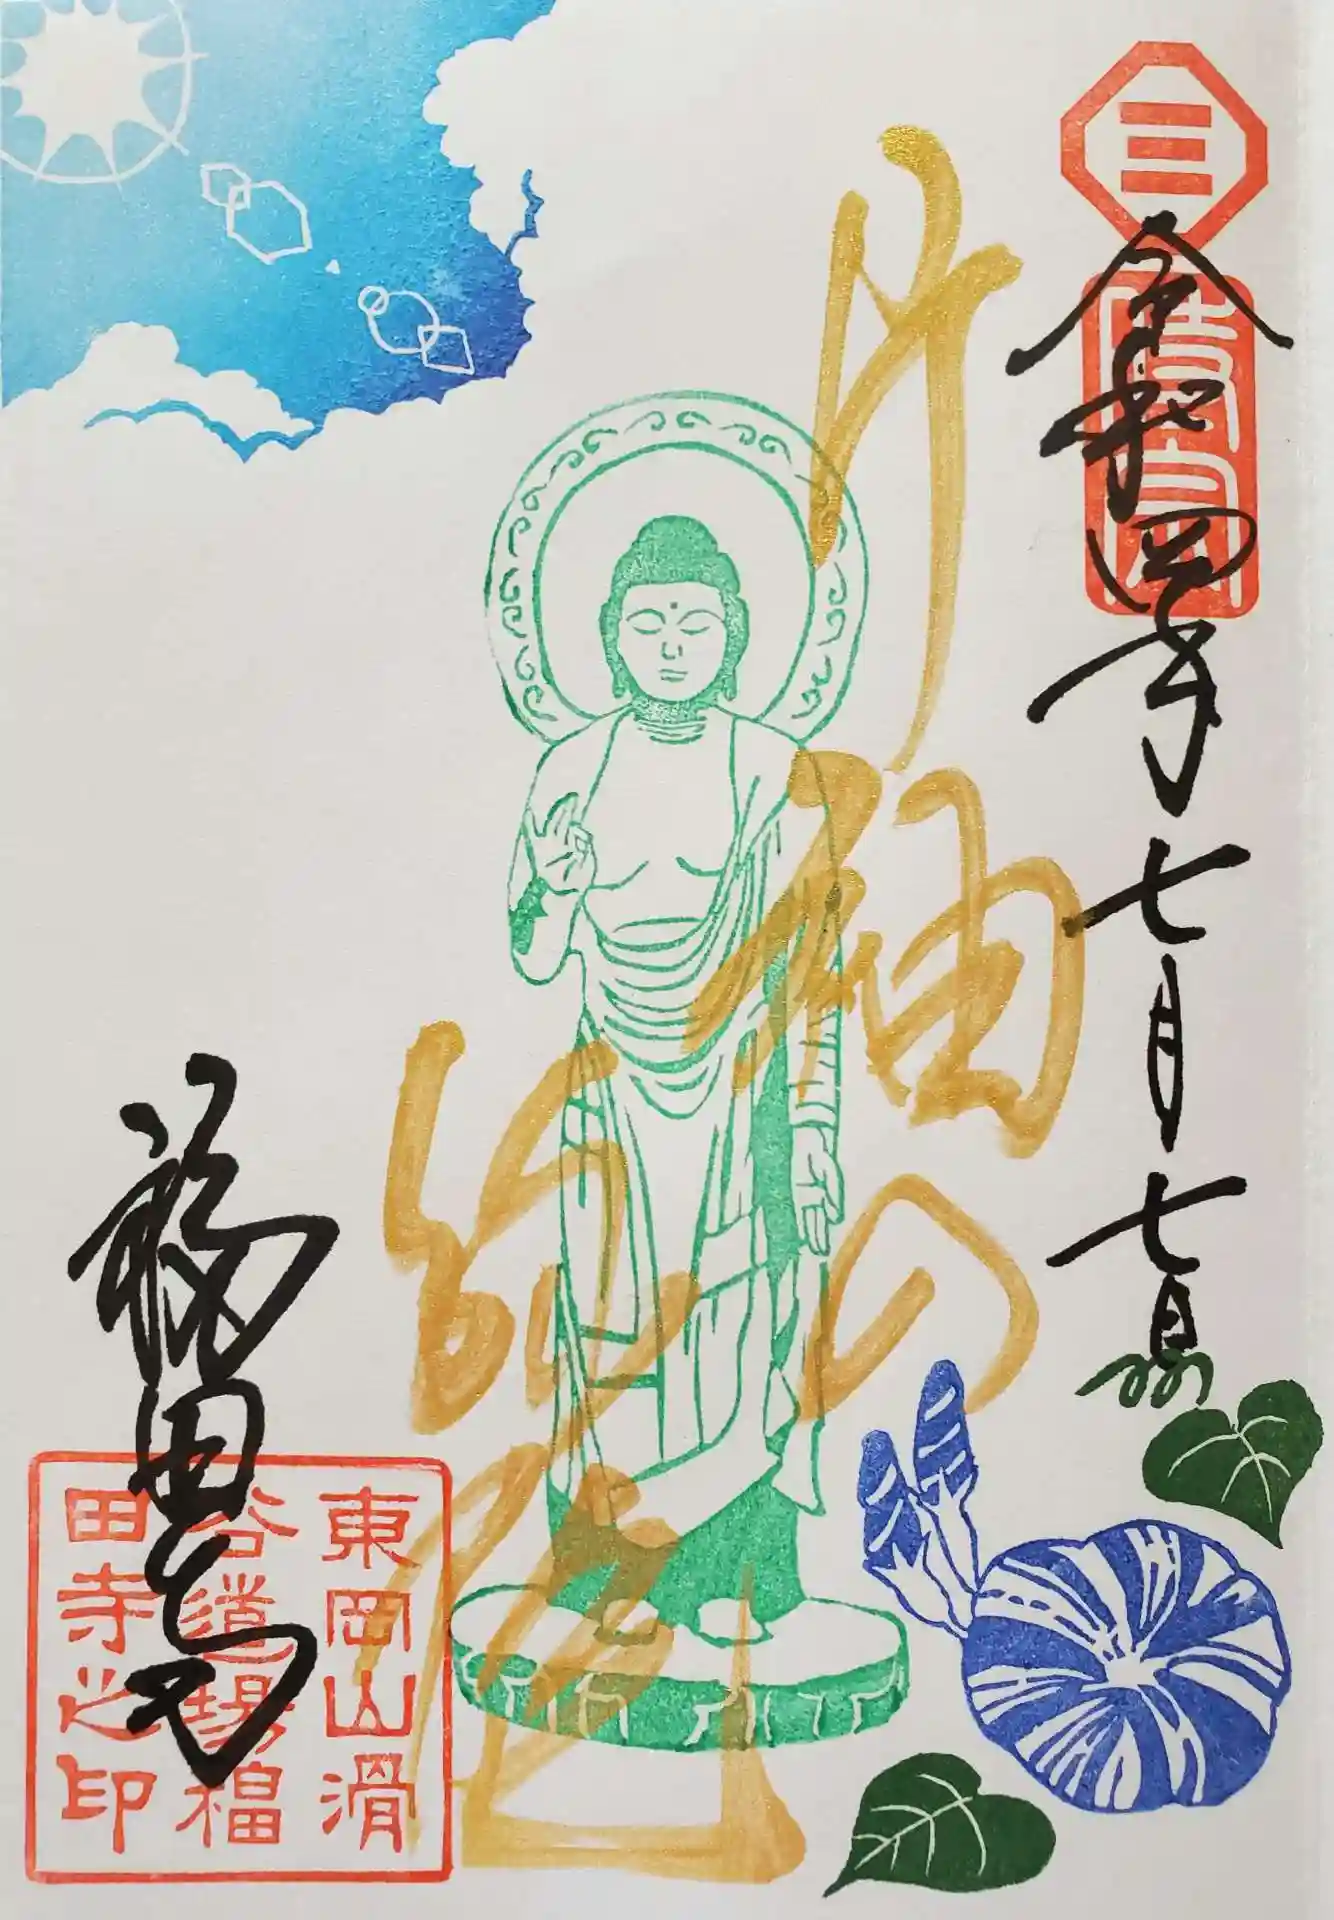 三
時宗
令和四年七月七日
片袖の
福田寺
東岡山滑
谷道場福
田寺之印